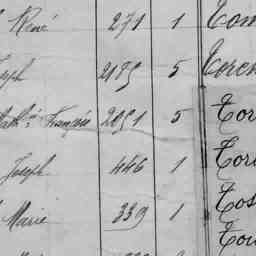 René 271 1 Tom
eph 2185 5 Toren
Math.é Françoise 2051 5 Tor
Joseph 446 1 Tor
Marie 339 1 Tos
Tou